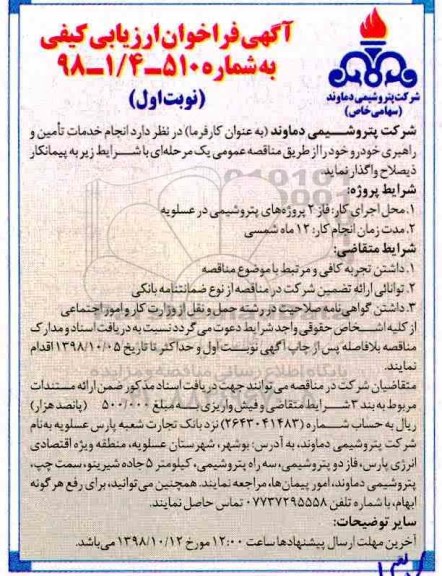 آگهی فراخوان ارزیابی کیفی
به شماره ۵۱۰-۱/۴-۹۸
(نوبت اول)
شرکت پتروشیمی دماوند
(سهامی خاص)
شرکت پتروشیمی دماوند (به عنوان کارفرما) در نظر دارد انجام خدمات تأمین و
راهبری خودرو خود را از طریق مناقصه عمومی یک مرحله‌ای با شرایط زیر به پیمانکار
ذیصلاح واگذار نماید.
شرایط پروژه:
۱. محل اجرای کار: فاز ۲ پروژه‌های پتروشیمی در عسلویه
۲. مدت زمان انجام کار: ۱۲ ماه شمسی
شرایط متقاضی:
۱. داشتن تجربه کافی و مرتبط با موضوع مناقصه
۲. توانائی ارائه تضمین شرکت در مناقصه از نوع ضمانتنامه بانکی
۳. داشتن گواهی‌نامه صلاحیت در رشته حمل و نقل از وزارت کار و امور اجتماعی
از کلیه اشخاص حقوقی واجد شرایط دعوت می گردد نسبت به دریافت اسناد و مدارک
مناقصه بلافاصله پس از چاپ آگهی نوبت اول و حداکثر تا تاریخ ۱۳۹۸/۱۰/۰۵ اقدام
نمایند.
متقاضیان شرکت در مناقصه می‌توانند جهت دریافت اسناد مذکور ضمن ارائه مستندات
مربوط به بند ۳ شرایط متقاضی و فیش واریزی به مبلغ ۵۰۰،۰۰۰ (پانصد هزار)
ریال به حساب شماره (۲۶۴۳۰۴۱۴۸۳) نزد بانک تجارت شعبه پارس عسلویه به نام
شرکت پتروشیمی دماوند، به آدرس: بوشهر، شهرستان عسلویه، منطقه ویژه اقتصادی
انرژی پارس، فاز دو پتروشیمی، سه راه پتروشیمی، کیلومتر ۵ جاده شیرینو، سمت چپ،
پتروشیمی دماوند، امور پیمان‌ها، مراجعه نمایند. همچنین می‌توانید، برای رفع هر گونه
ابهام، با شماره تلفن ۰۷۷۳۷۲۹۵۵۵۸ تماس حاصل نمایند.
سایر توضیحات:
آخرین مهلت ارسال پیشنهادها ساعت ۱۲:۰۰ مورخ ۱۳۹۸/۱۰/۱۲ می‌باشد.